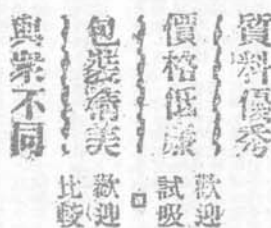 質料優秀
價格低廉
包裝精美
與衆不同
歡迎
試吸
歡迎
比較